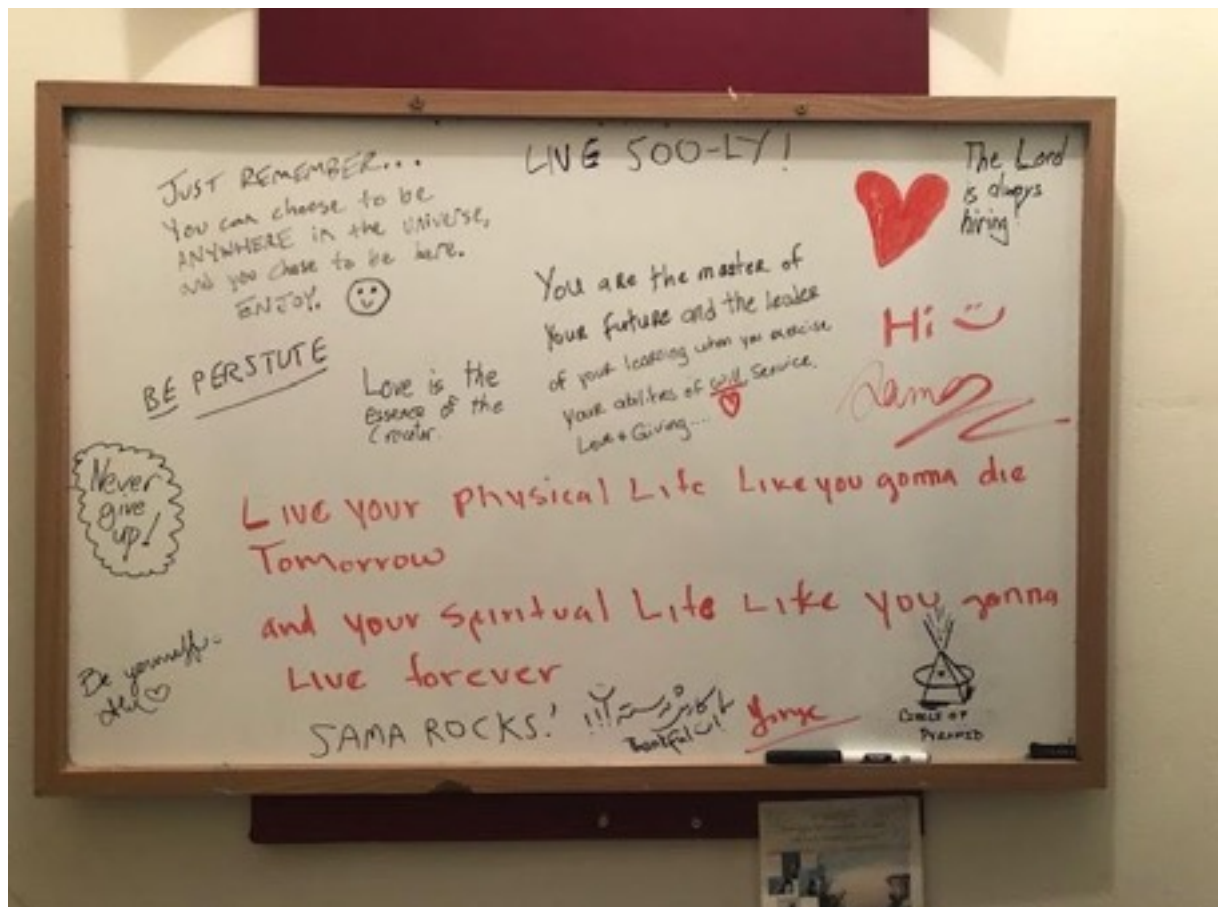 LIVE 500-LY!
JUST REMEMBER...
You can choose to be
ANYWHERE in the UNIVERSE,
and you chose to be here.
ENJOY.
The Lord
is always
hiring!
You are the master of
Your future and the leader
of your learning when you exercise
your abilities of will service,
Love + Giving....
Hi
BE PERSTUTE
Love is the
essence of the
Creator.
Never
give
up!
Live your physical Life Like you gonna die
Tomorrow
and your spiritual Life Like you gonna
Live forever
Be yourself
SAMA ROCKS!
Thankful
CIRCLE OF
PYRAMID